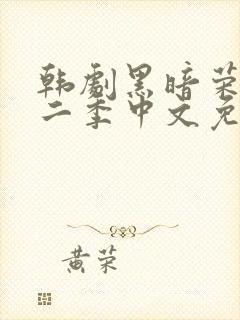 韩剧黑暗荣
二季中文免
黄荣